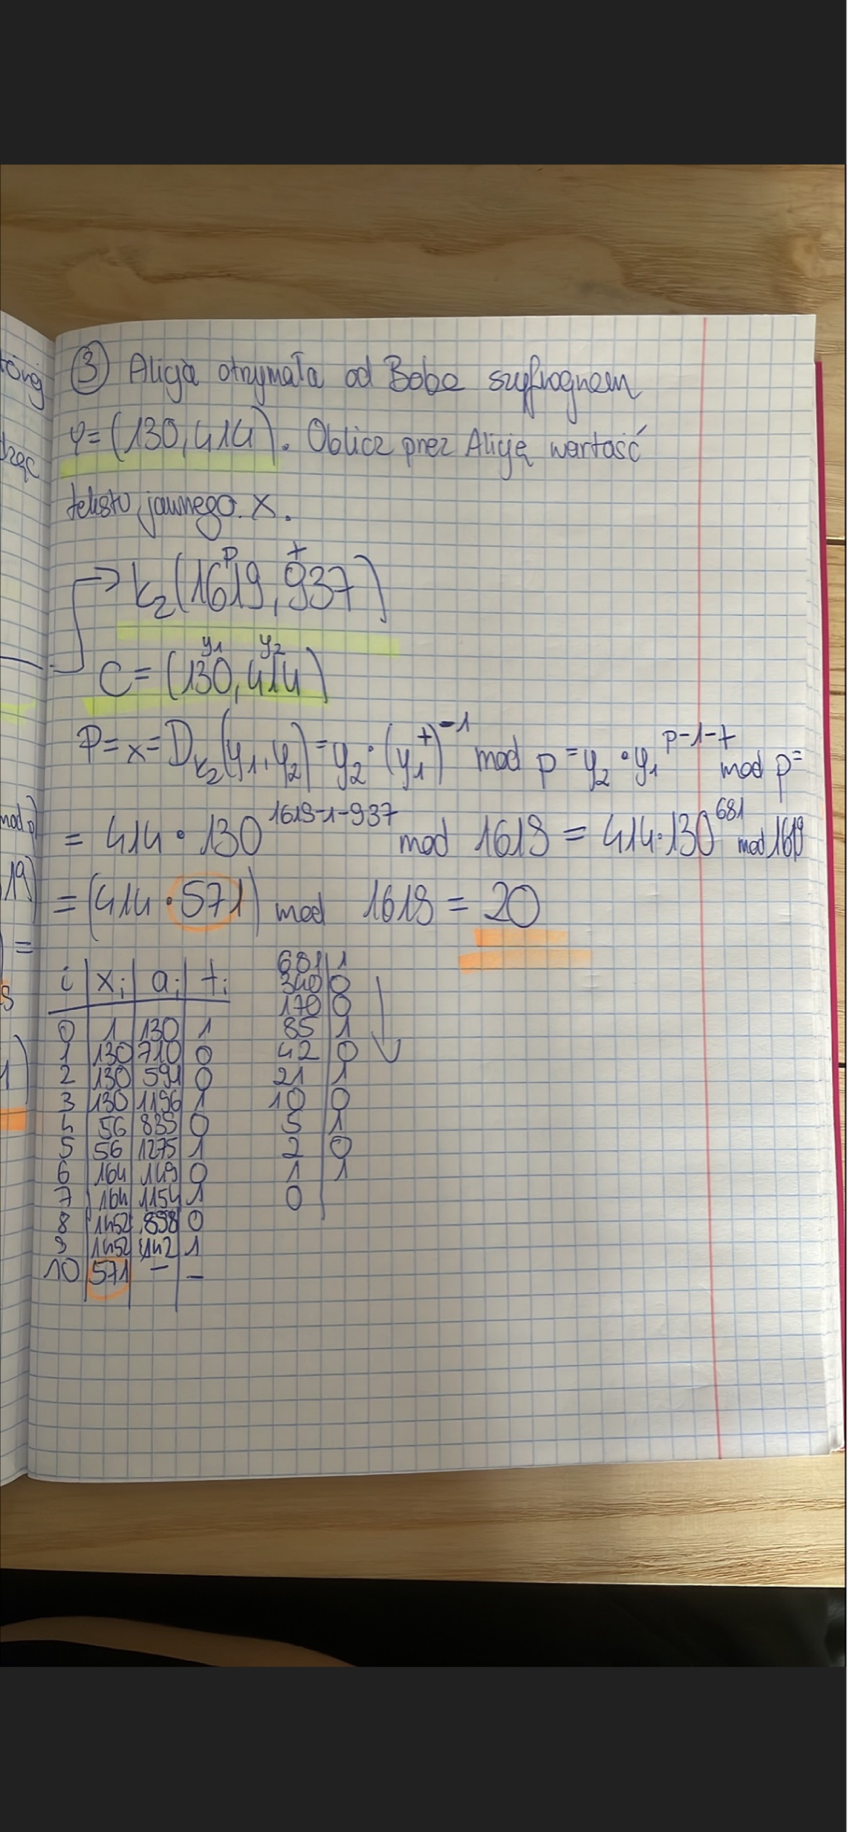 ③ Alicja otrzymała od Boba szyfrogram
φ=(130,414). Oblicz przez Alicję wartość
tekstu jawnego x.
p t
→ k₂(1619,937)
y₁ y₂
C=(130,414)
P=x=D_k₂(y₁,y₂)=y₂·(y₁^t)^-1 mod p =y₂·y₁^p-1-t mod p=
= 414·130^1619-1-937 mod 1619 = 414·130^681 mod 1619
=(414·571) mod 1619 = 20
i | xᵢ | aᵢ | tᵢ
0 | 1 | 130 | 1
1 | 130 | 710 | 0
2 | 130 | 591 | 0
3 | 130 | 1196 | 1
4 | 56 | 835 | 0
5 | 56 | 1275 | 1
6 | 164 | 149 | 0
7 | 164 | 1154 | 1
8 | 1452 | 898 | 0
9 | 1452 | 142 | 1
10 | 571 | – | –
681 | 1
340 | 0
170 | 0
85 | 1
42 | 0
21 | 1
10 | 0
5 | 1
2 | 0
1 | 1
0
mod p)
19)
) =